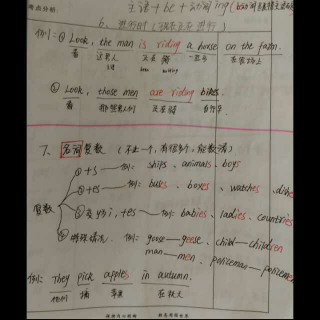 主语+be+动词ing(be动词
6、进行时(
例：① Look, the man is riding a horse on the farm.
看 这男人 正在骑 一匹马 在农场上
② Look, those men are riding bikes.
看 那些男人们 正在骑 自行车
7、名词复数(不止一个，有很多个，能数清)
复数
① +s 例：ships、animals、boys
② +es 例：buses、boxes、watches、dishe
③ 变y为i，+es 例：babies、ladies、countries
④ 特殊情况. 例：goose—geese、child—children
man—men、policeman—policemen
例：They pick apples in autumn.
他们 摘 苹果 在秋天